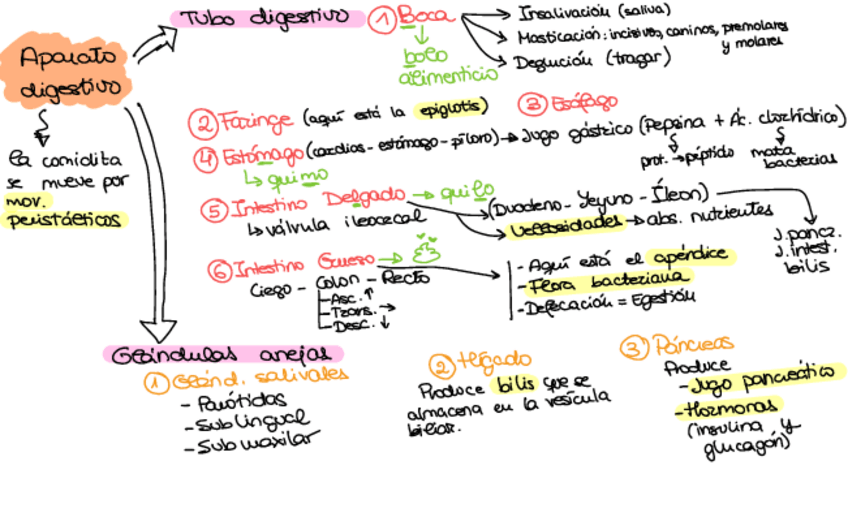 Aparato
digestivo
la comidita
se mueve por
mov.
peristálticos
Tubo digestivo
① Boca
bolo
alimenticio
Insalivación (saliva)
Masticación: incisivos, caninos, premolares
y molares
Deglución (tragar)
② Faringe (aquí está la epiglotis)
③ Esófago
④ Estómago (cardias - estómago - píloro) → Jugo gástrico (Pepsina + Ác. clorhídrico)
prot. → péptido
mata
bacterias
↳ quimo
⑤ Intestino Delgado → quilo
↳ válvula ileocecal
(Duodeno - Yeyuno - Íleon)
Vellosidades → abs. nutrientes
J. pancr.
J. intest.
bilis
⑥ Intestino Grueso →
Ciego - Colon - Recto
- Asc. ↑
- Trans. →
- Desc. ↓
- Aquí está el apéndice
- Flora bacteriana
- Defecación = Egestión
Glándulas anejas
① Gland. salivales
- Parótidas
- Sublingual
- Submaxilar
② Hígado
Produce bilis que se
almacena en la vesícula
biliar.
③ Páncreas
Produce
- Jugo pancreático
- Hormonas
(insulina y
glucagón)